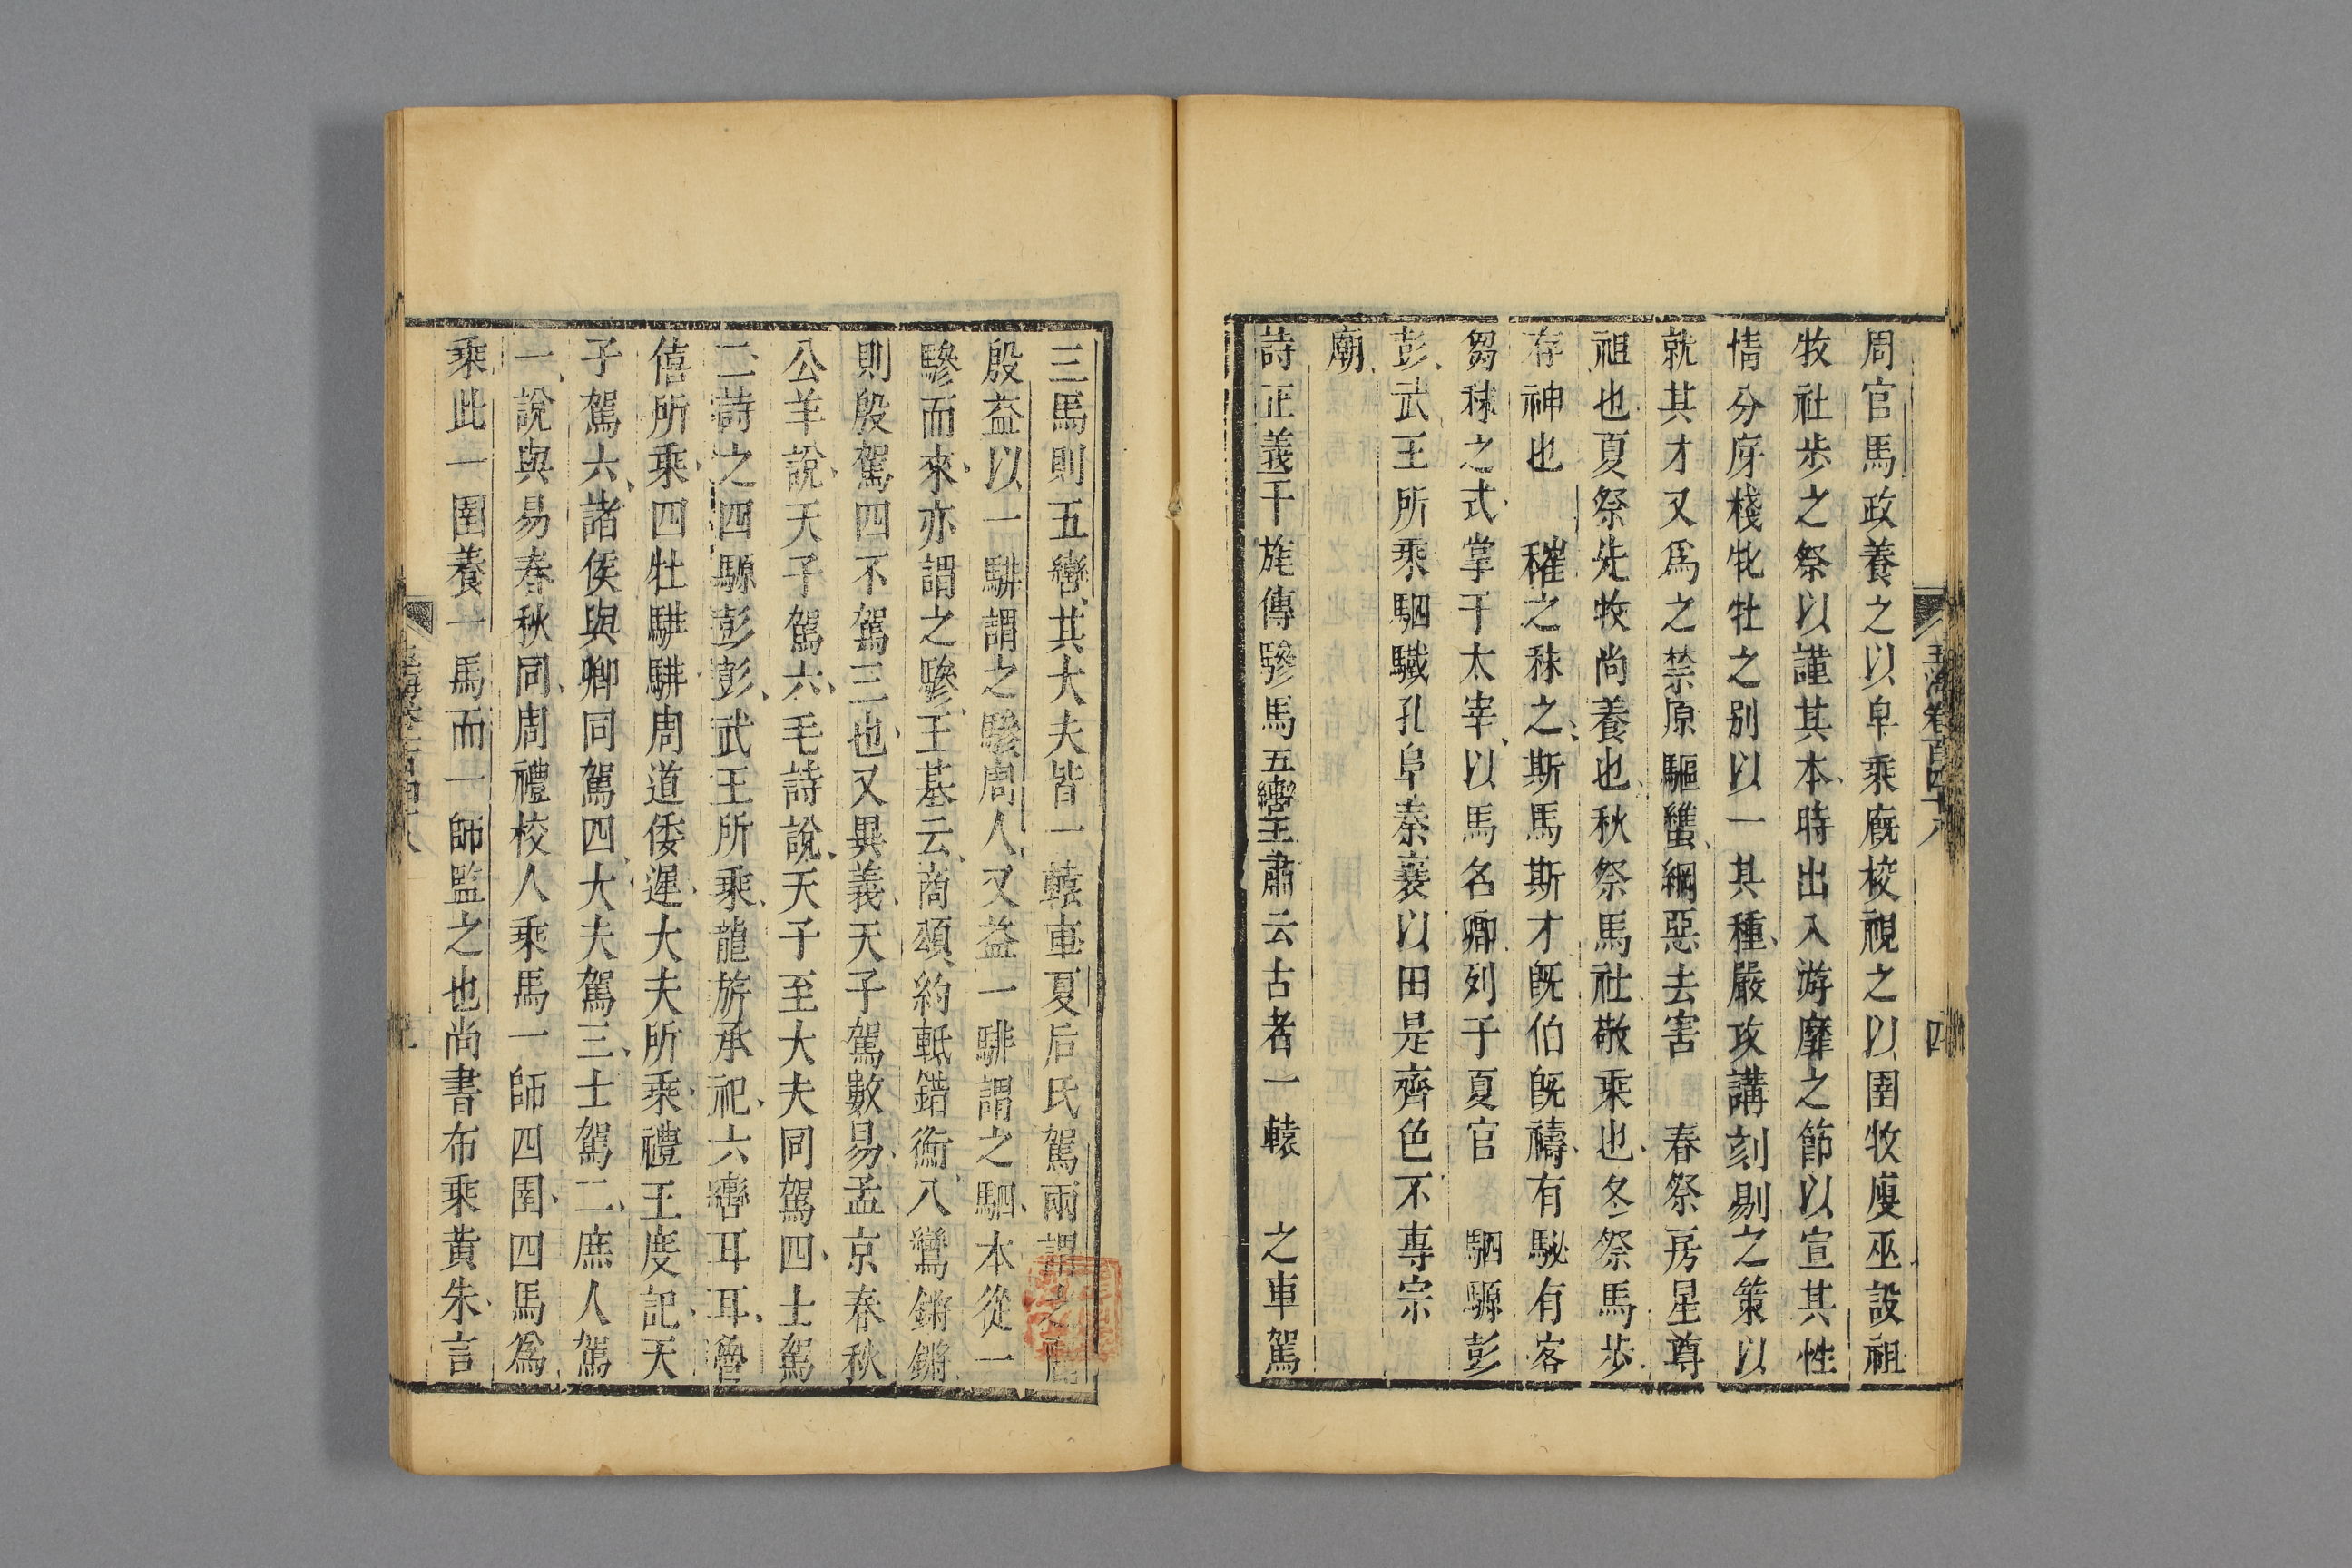 周官馬政養之以皁乘廐校視之以圉牧廋巫設祖
牧社步之祭以謹其本時出入游靡之節以宣其性
情分庌棧牝牡之别以一其種嚴攻講刻剔之策以
就其才又爲之禁原驅蠶綱惡去害 春祭房星尊
祖也夏祭先牧尚養也秋祭馬社敬乘也冬祭馬步
存神也 摧之秣之斯馬斯才旣伯旣禱有駜有客
芻秣之式掌于太宰以馬名卿列于夏官 駟騵彭
彭武王所乘駟驖孔阜秦襄以田是齊色不專宗
廟
詩正義干旄傳驂馬五轡王肅云古者一轅 之車駕
三馬則五轡其大夫皆一轅車夏后氏駕兩謂之麗
殷益以一騑謂之驂周人又益一騑謂之駟本從一
驂而來亦謂之驂王基云商頌約軝錯衡八鸞鏘鏘
則殷駕四不駕三也又異義天子駕數易孟京春秋
公羊說天子駕六毛詩說天子至大夫同駕四士駕
二詩之四騵彭彭武王所乘龍旂承祀六轡耳耳魯
僖所乘四牡騑騑周道倭遲大夫所乘禮王度記天
子駕六諸侯與卿同駕四大夫駕三士駕二庶人駕
一說與易春秋同周禮校人乘馬一師四圉四馬爲
乘此一圉養一馬而一師監之也尚書布乘黄朱言